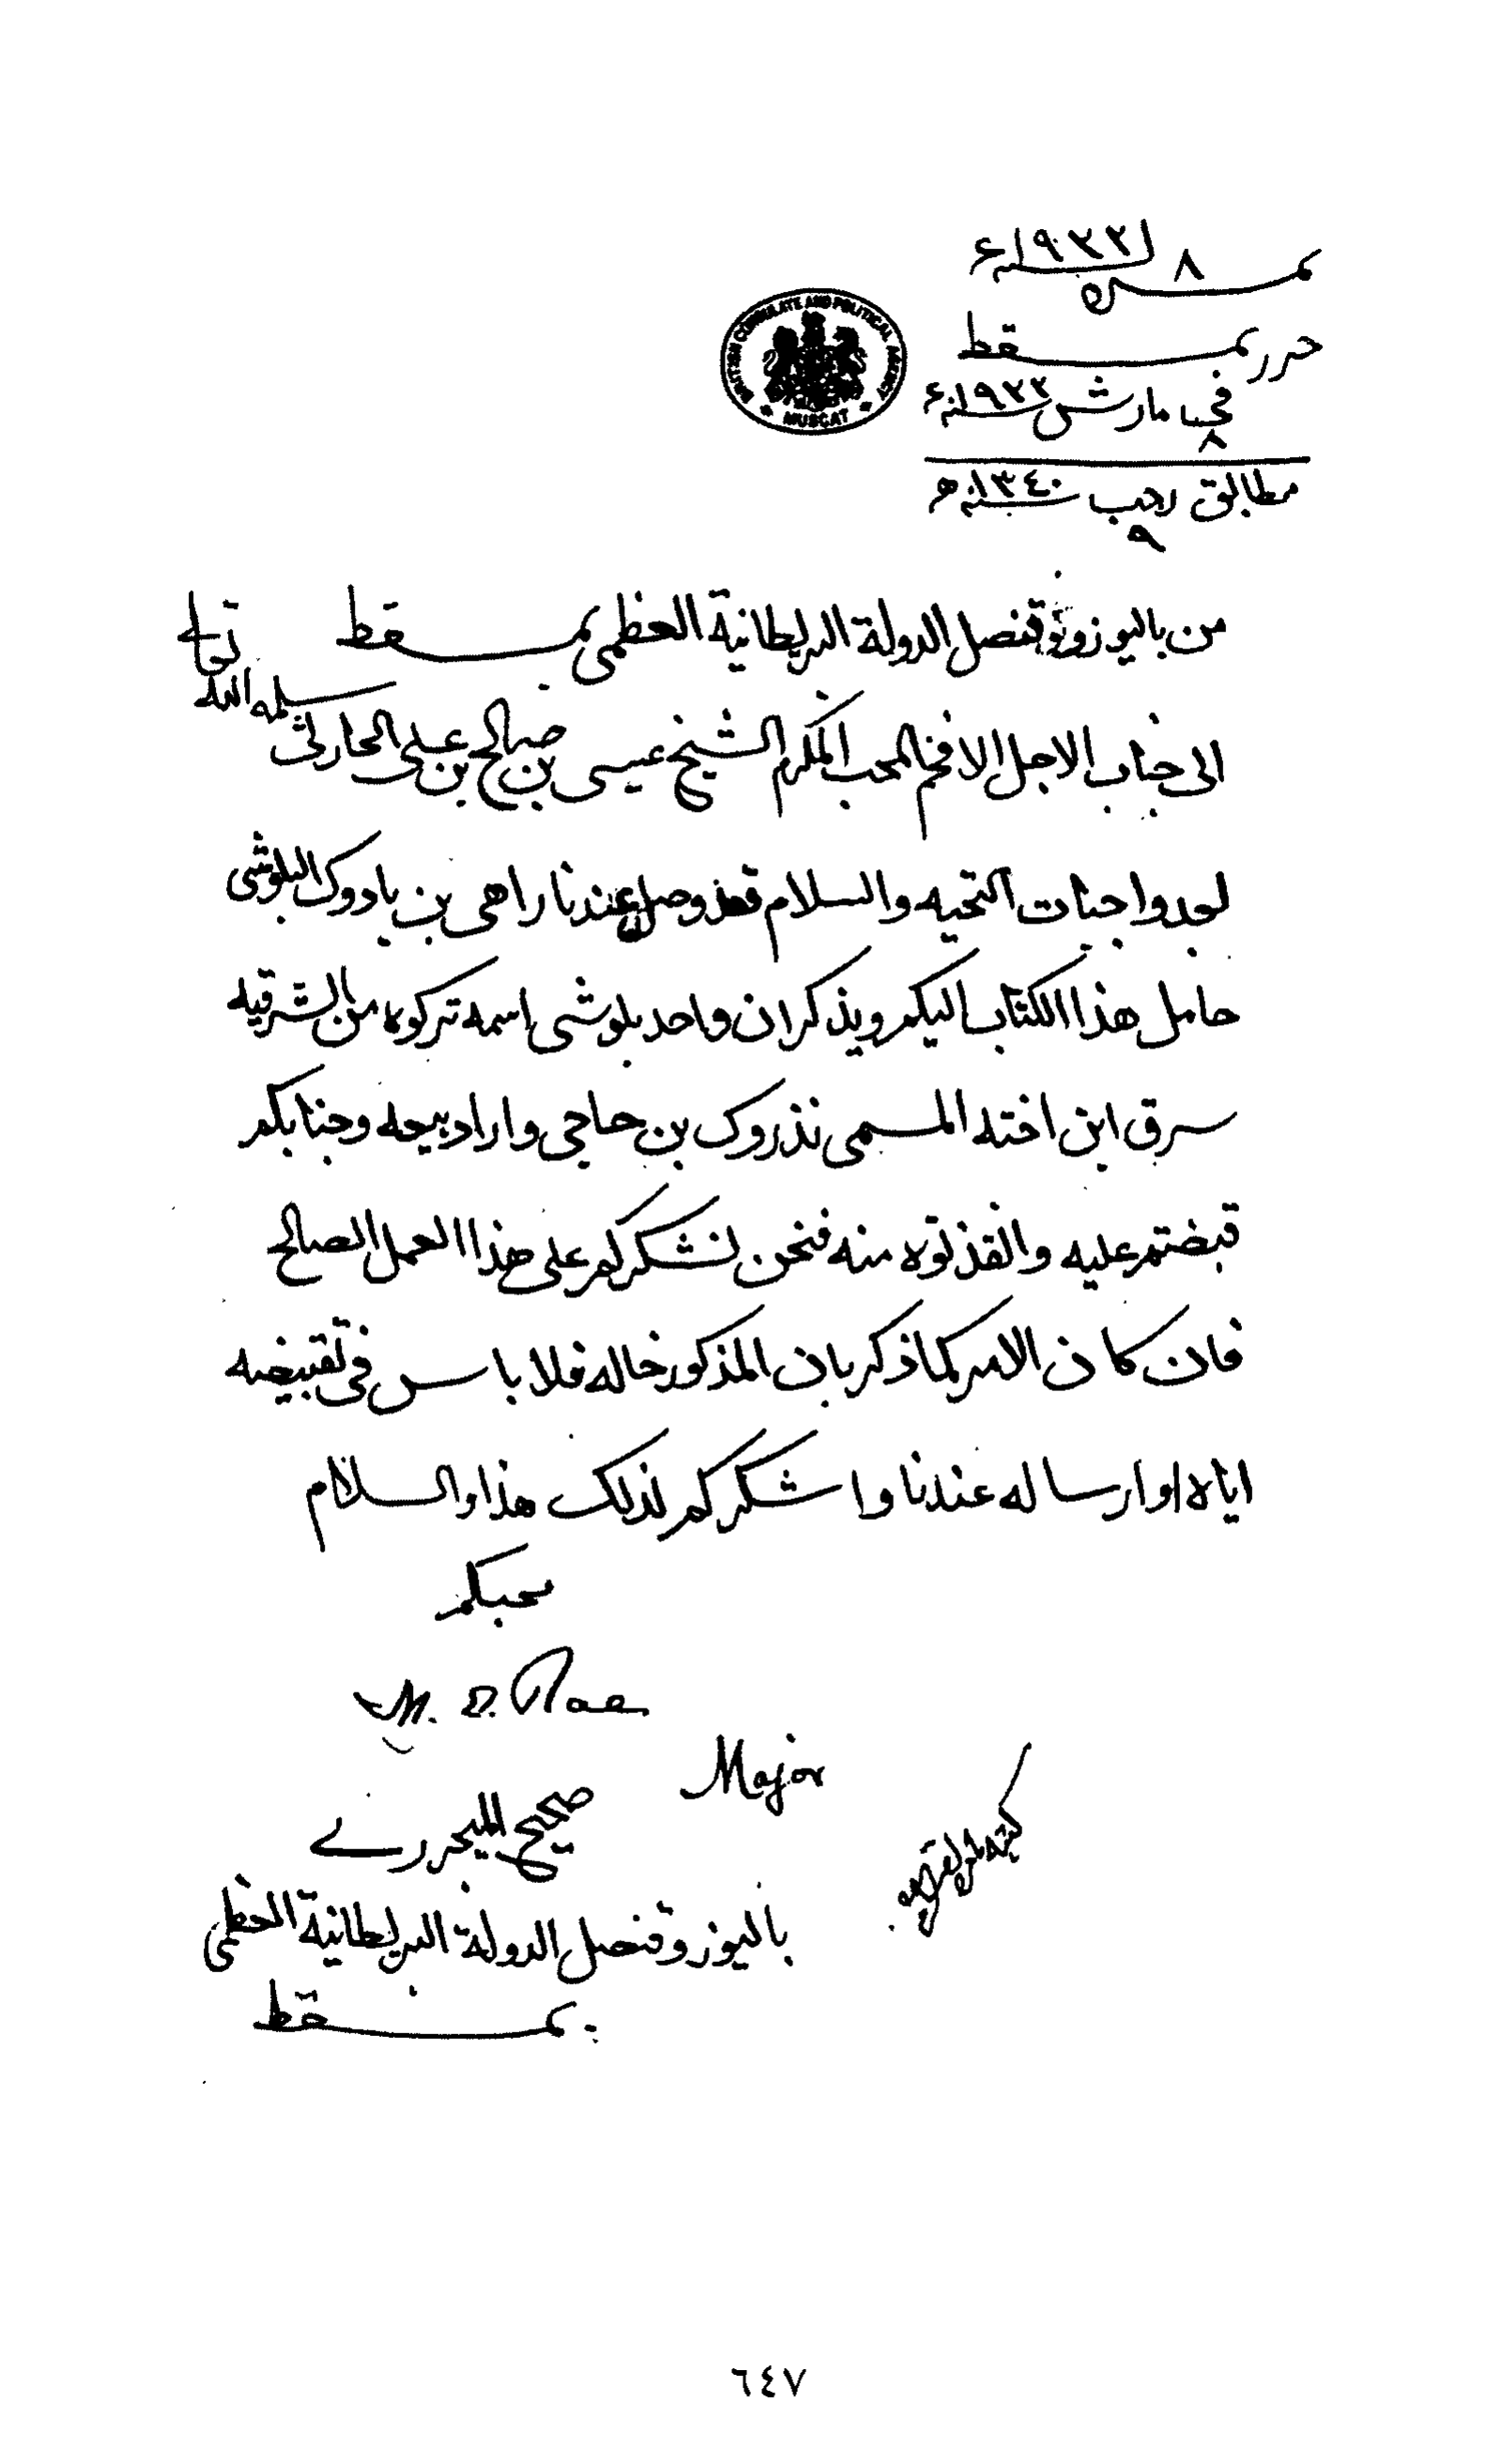 نمره ٨ سنة ١٩٢٢ء
BRITISH CONSULATE AND POLITICAL AGENCY
MUSCAT
حرر بمسقط
في ٨ مارش سنة ١٩٢٢ء
مطابق ٩ رجب سنة ١٣٤٠ھ
من باليوز وقنصل الدولة البريطانية العظمى بمسقط
الى جناب الاجل الافخم المحب المكرم الشيخ عيسى بن صالح بن علي الحارثي سلمه الله تعالى
بعد واجبات التحيه والسلام قد وصل عندنا راهي بن بادوك البلوشي
حامل هذا الكتاب اليكم ويذكر ان واحد بلوشي اسمه تركوه من الشرقيه
سرق ابن اخته المسمى نذروك بن حاجي واراد بيعه وجنابكم
قبضتم عليه وانقذتوه منه فنحن نشكركم على هذا العمل الصالح
فان كان الامر كما ذكر بان المذكور خاله فلا باس في تقبيضه
اياه او ارساله عندنا واشكركم لذلك هذا والسلام
محبكم
M. E. Rae
Major
صحيح الميجر رے
باليوز وقنصل الدولة البريطانية العظمى
بمسقط
٦٤٧